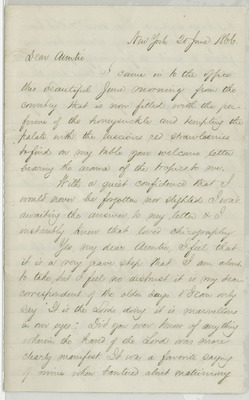 New York 20 June 1866.
Dear Auntie
I came in to the office
this beautiful June morning from the
country that is now filled with the per-
fume of the honeysuckle and tempting the
palate with the luscious red strawberries
to find on my table your welcome letter
bearing the aroma of the tropics to me.
With a quiet confidence that I
would never be forgotten nor slighted I was
awaiting the answer to my letter & I
instantly knew that loved chirography.
Yes my dear Auntie, I feel that
it is a very grave step that I am about
to take, but I feel no distrust it is, my dear
correspondent of the olden days & I can only
say It is the Lords doing it is marvellous
in our eyes: Did you ever know of anything
wherein the hand of the Lord was more
clearly manifest. It was a favorite saying
of mine when bantered about matrimony